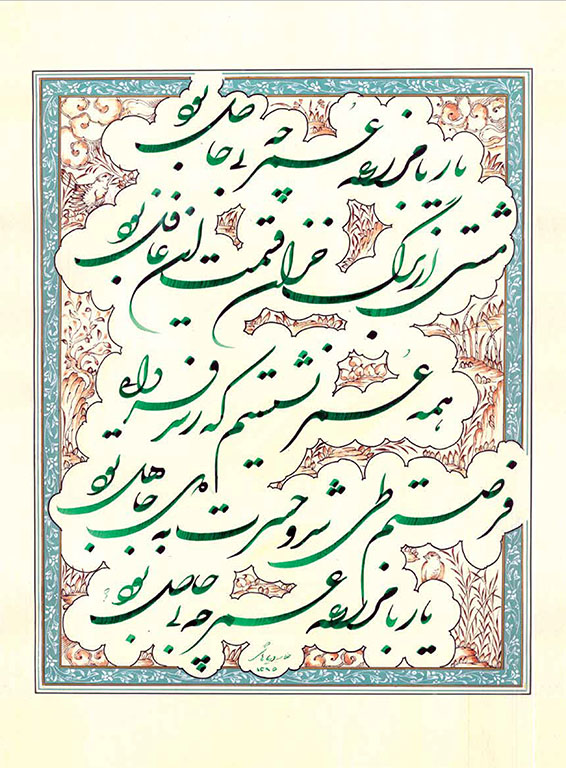 یا ربا مزرعه عمر چه بی حاصل بود
مشتی از برگ خزان قسمت این غافل بود
همه عمر نشستیم که رسد
فرصتم طی شد و حسرت به جاهل بود
یا ربا مزرعه عمر چه بی حاصل بود
۱۳۸۵